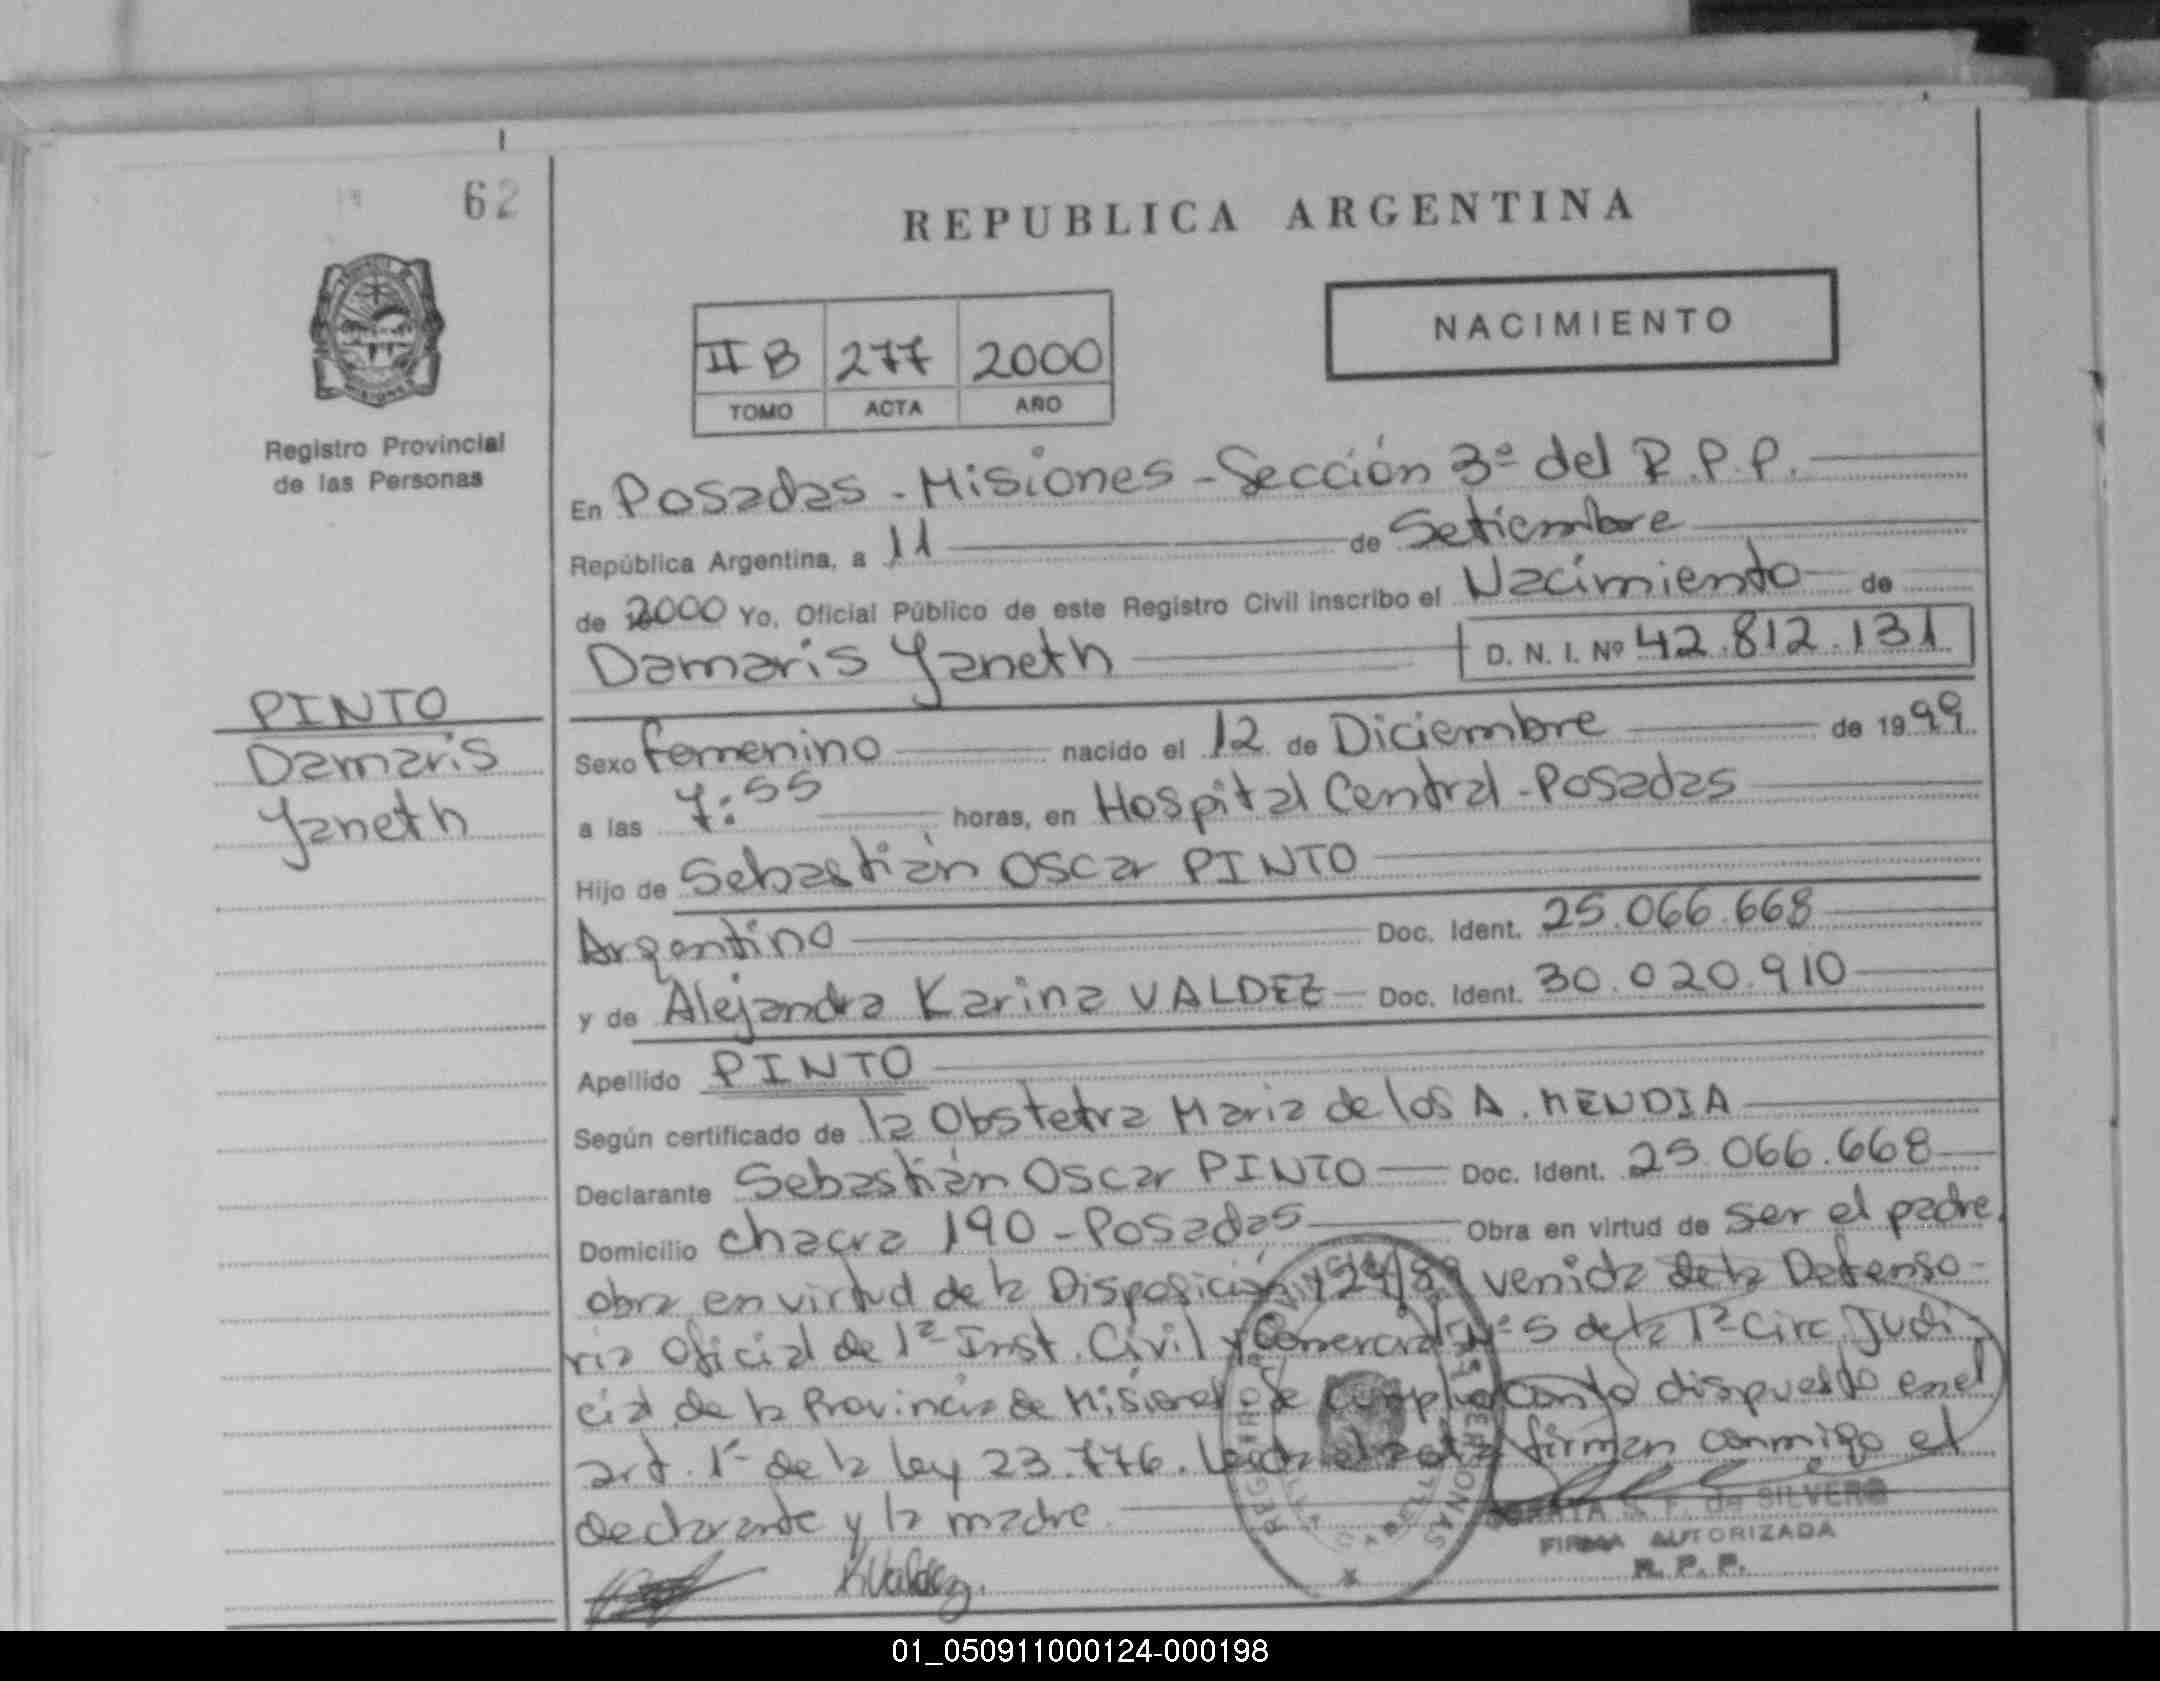 62
REPUBLICA ARGENTINA
NACIMIENTO
II B 277 2000
TOMO ACTA AÑO
Registro Provincial
de las Personas
En Posadas - Misiones - Sección 3ª del R.P.P.
República Argentina, a 11 de Setiembre
de 2000 Yo, Oficial Público de este Registro Civil inscribo el Nacimiento de
Damaris Yaneth D. N. I. Nº 42.812.131
PINTO
Damaris
Yaneth
Sexo femenino nacido el 12 de Diciembre de 1999
a las 7:55 horas, en Hospital Central - Posadas
Hijo de Sebastián Oscar PINTO
Argentino Doc. Ident. 25.066.668
y de Alejandra Karina VALDEZ Doc. Ident. 30.020.910
Apellido PINTO
Según certificado de la Obstetra Maria de los A. MENDIA
Declarante Sebastián Oscar PINTO Doc. Ident. 25.066.668
Domicilio chacra 190 - Posadas Obra en virtud de ser el padre,
obra en virtud de la Disposición 124/89 venida de la Defenso-
ria Oficial de 1ª Inst. Civil y Comercial Nº 5 de la 1ª Circ. Judi
cial de la Provincia de Misiones dispuesto en el
art. 1º de la ley 23.776. Leida el acta firman conmigo el
declarante y la madre
KValdez.
S. F. de SILVERO
FIRMA AUTORIZADA
R. P. P.
01_050911000124-000198